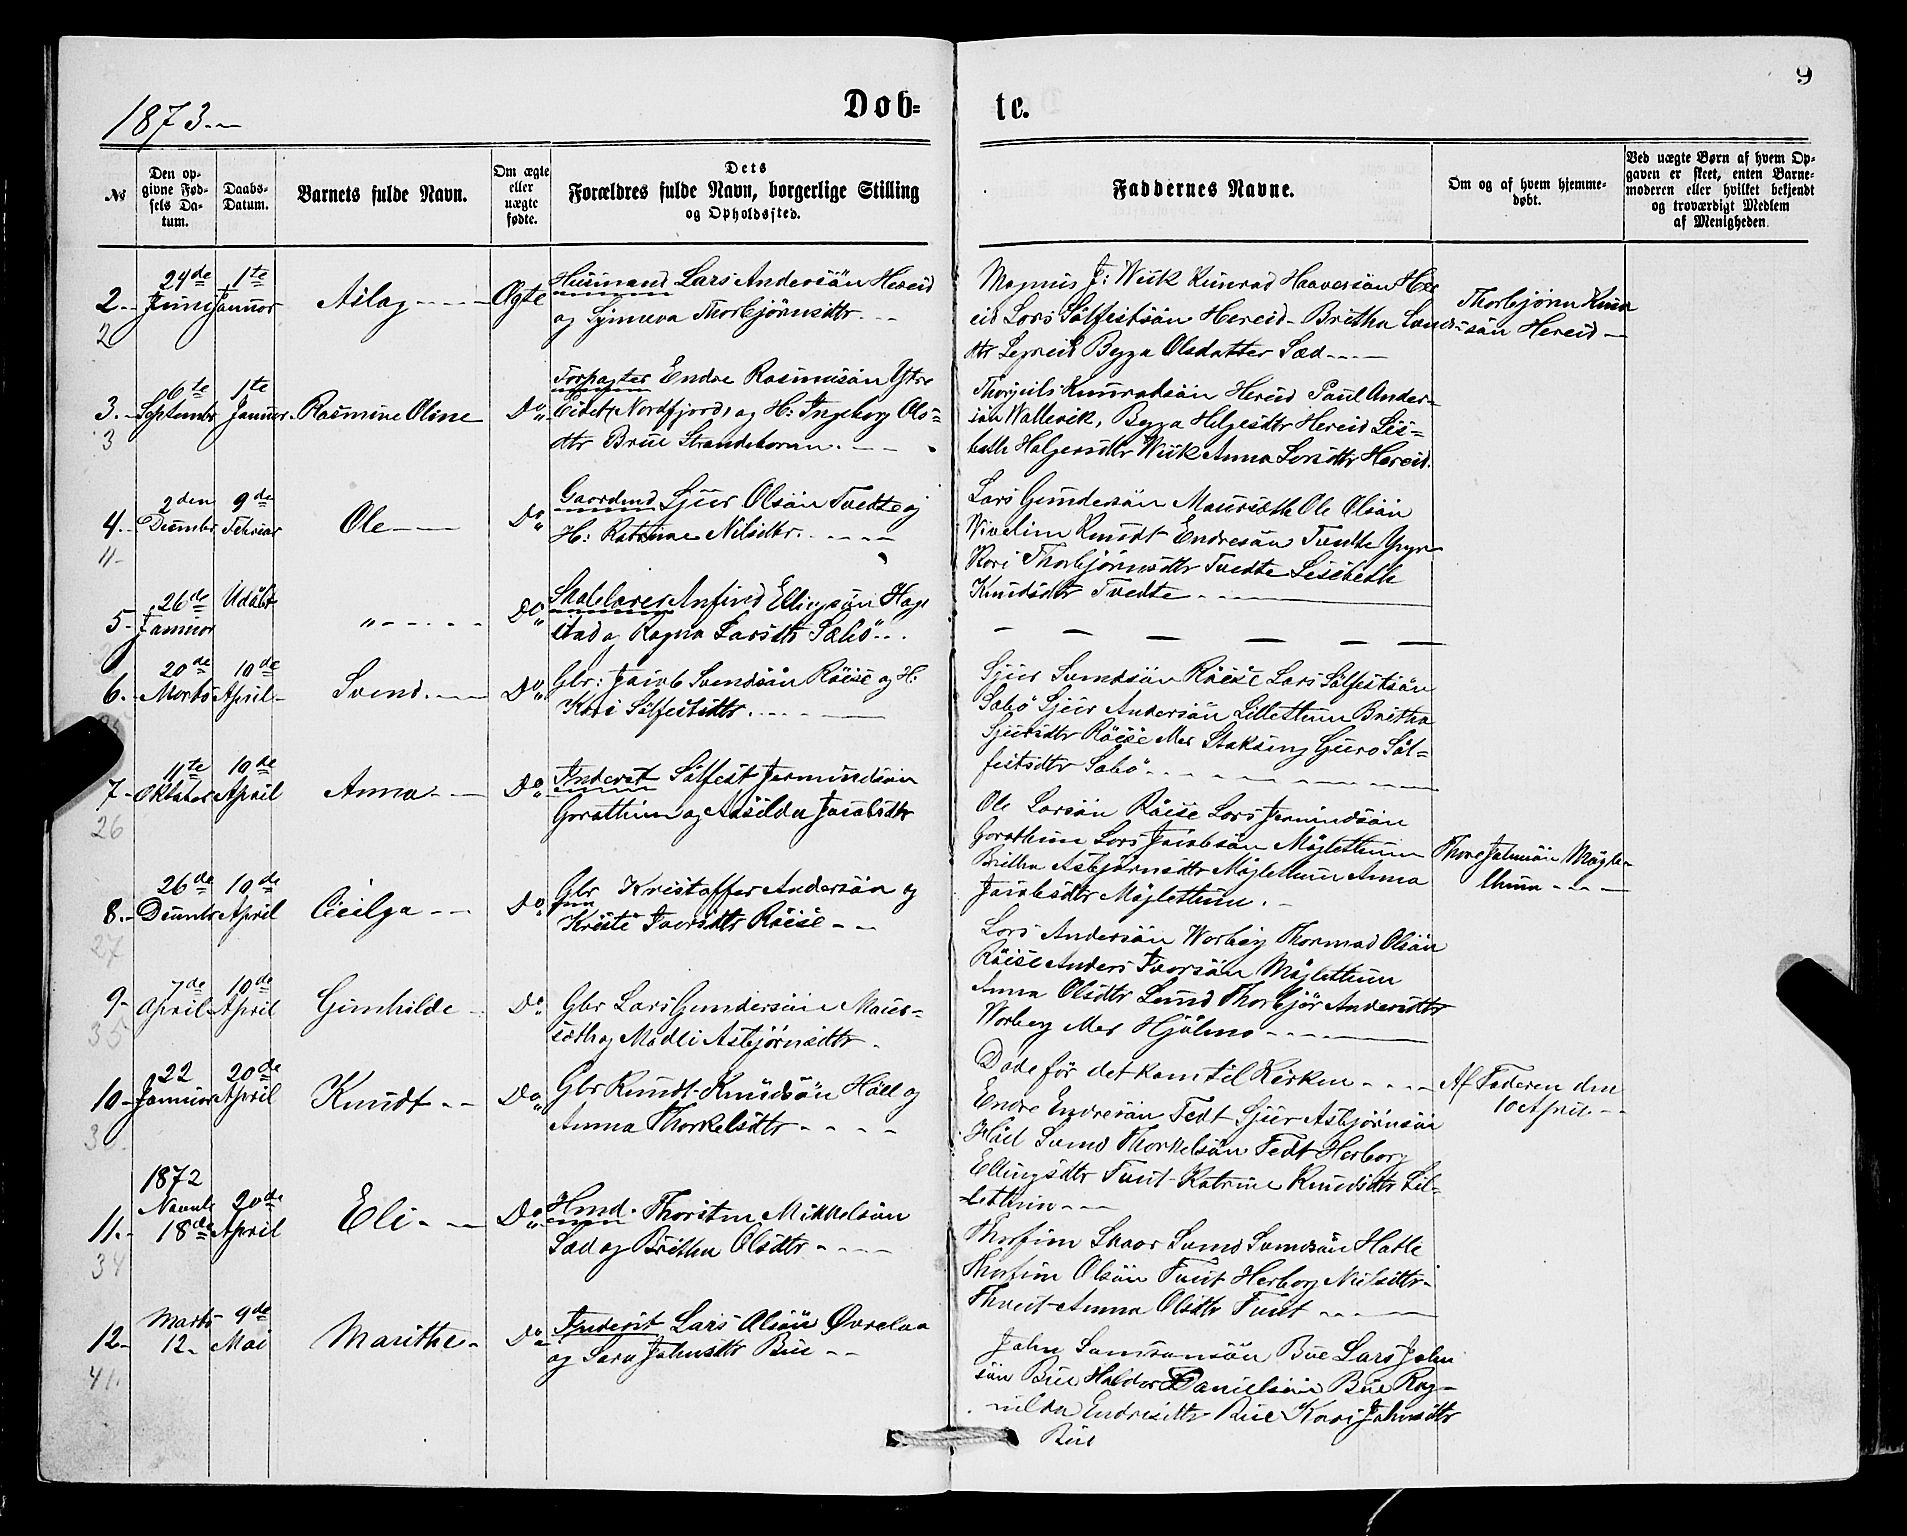 9
1873.—
Døb-
te.
№
Den op-
givne Fød-
sels Da-
tum.
Daabs-
Datum.
Barnets fulde Navn.
Om ægte
eller
uægte
fødte.
Dets
Forældres fulde Navn, borgerlige Stilling
og Opholdssted.
Faddernes Navne.
Om og af hvem hjemme-
døbt.
Ved uægte Børn af hvem Op-
gaven er skeet, enten Barne-
moderen eller hvilket bekjendt
og troværdigt Medlem
af Menigheden.
2
2
24de
Juni
1te
Januar
Aslag
Ægte
Husmand Lars Andersön Hereid
og Synneva Thorbjörnsdtr.
Magnus J: Wiik Kunrad Haaversön He
eid Lars Sölfestsön Hereid Britha Lars
dtr Legreid Bygga Olsdatter Sæd
Thorbjörn Knu
sön Hereid
3.
3
6te
September
1te
Januar
Rasmine Oline
Do
Forpagter Endre Rasmusön Ytre
Eidet, Nordfjord, og H: Ingeborg Ols-
dtr Brue Strandebarm.
Thorgils Knuradsön Hereid Paul Ander-
sön Wallevik, Bygga Helgesdtr Hereid Lis-
beth Holgersdtr Wiik Anna Larsdtr Hereid.
4.
11
2den
Decembr
9de
Februar
Ole
Do
Gaardmd Sjur Olsön Tvedte og
H: Katrine Nilsdtr.
Lars Gundersön Maursæth Ole Olsön
Wivelim Knudt Endresön Tvedte
Kari Thorbjörnsdtr Tvedte Lisebeth
Knudsdtr Tvedte
5
26de
Januar
Udöbt
"
Do
Skolelærer Anfind Ellingsön Hage
stad og Ragna Larsdtr Sæbö
6.
20de
Marts
10de
April
Svend
Do
Gbr: Jacob Svendsön Röise og H:
Kari Sölfestsdtr.
Sjur Svendsön Röise Lars Sölfestsön
Sæbö Sjur Andersön Lillethun Britha
Sjursdtr Röise Mer Staksing Guro Söl-
festsdtr Sæbö
7
26
11te
Oktober
10de
April
Anna
Do
Inderst Sölfest Jermundsön
Garathun og Aasilda Jacobsdtr
Ole Larsön Röise Lars Jermundsön
Garathun Lars Jacobsön Möglethun
Britha Asbjörnsdtr Möglethun Anna
Jacobsdtr Möglethun.
Thore Johnsön Mögle-
thun
8.
27
26de
Decmbr
10de
April
Cicilga
Do
Gbr Kristoffer Andersön og
Kristi Ivarsdtr Röise
Lars Andersön Worberg Thormod Olsön
Röise Anders Ivarsön Möglethun
Anna Olsdtr Lund Thorbjör Andersdtr
Worberg Mer Hjölmo
9
35
7de
April
10de
April
Gunhilde
Do
Gbr Lars Gundersön Maur-
sæth og Madli Asbjörnsdtr
Döde för det kom til Kirken
10
36
22
Januar
20de
April
Knudt
Do
Gbr Knudt Knudsön Höel og
Anna Thorkelsdtr
Endre Endresön Tedt Sjur Asbjörnsön
Höel Svend Thorkelsön Tedt Herborg
Ellingsdtr Tveit Katrine Knudsdtr Lil-
lethun
Af Faderen den
10 April.
11.
34
1872
Novmb
18de
20de
April
Eli
Do
Hmd. Thorsten Mikkelsön
Sæd og Britha Olsdtr
Thorfinn Skaar Svend Svendsön Hatle
Thorfinn Olsön Tveit Herborg Nielsdtr
Tveit Anna Olsdtr Tveit
12
41.
Marts
12
9de
Mai
Marithe
Do
Inderst Lars Olsön Øvrelaa
og Sara Johnsdtr Bue
John Samsonsön Bue Lars John
sön Bue Haldor Danielsön Bue Rag-
nilda Endresdtr Bue Kari Johnsdtr
Bue